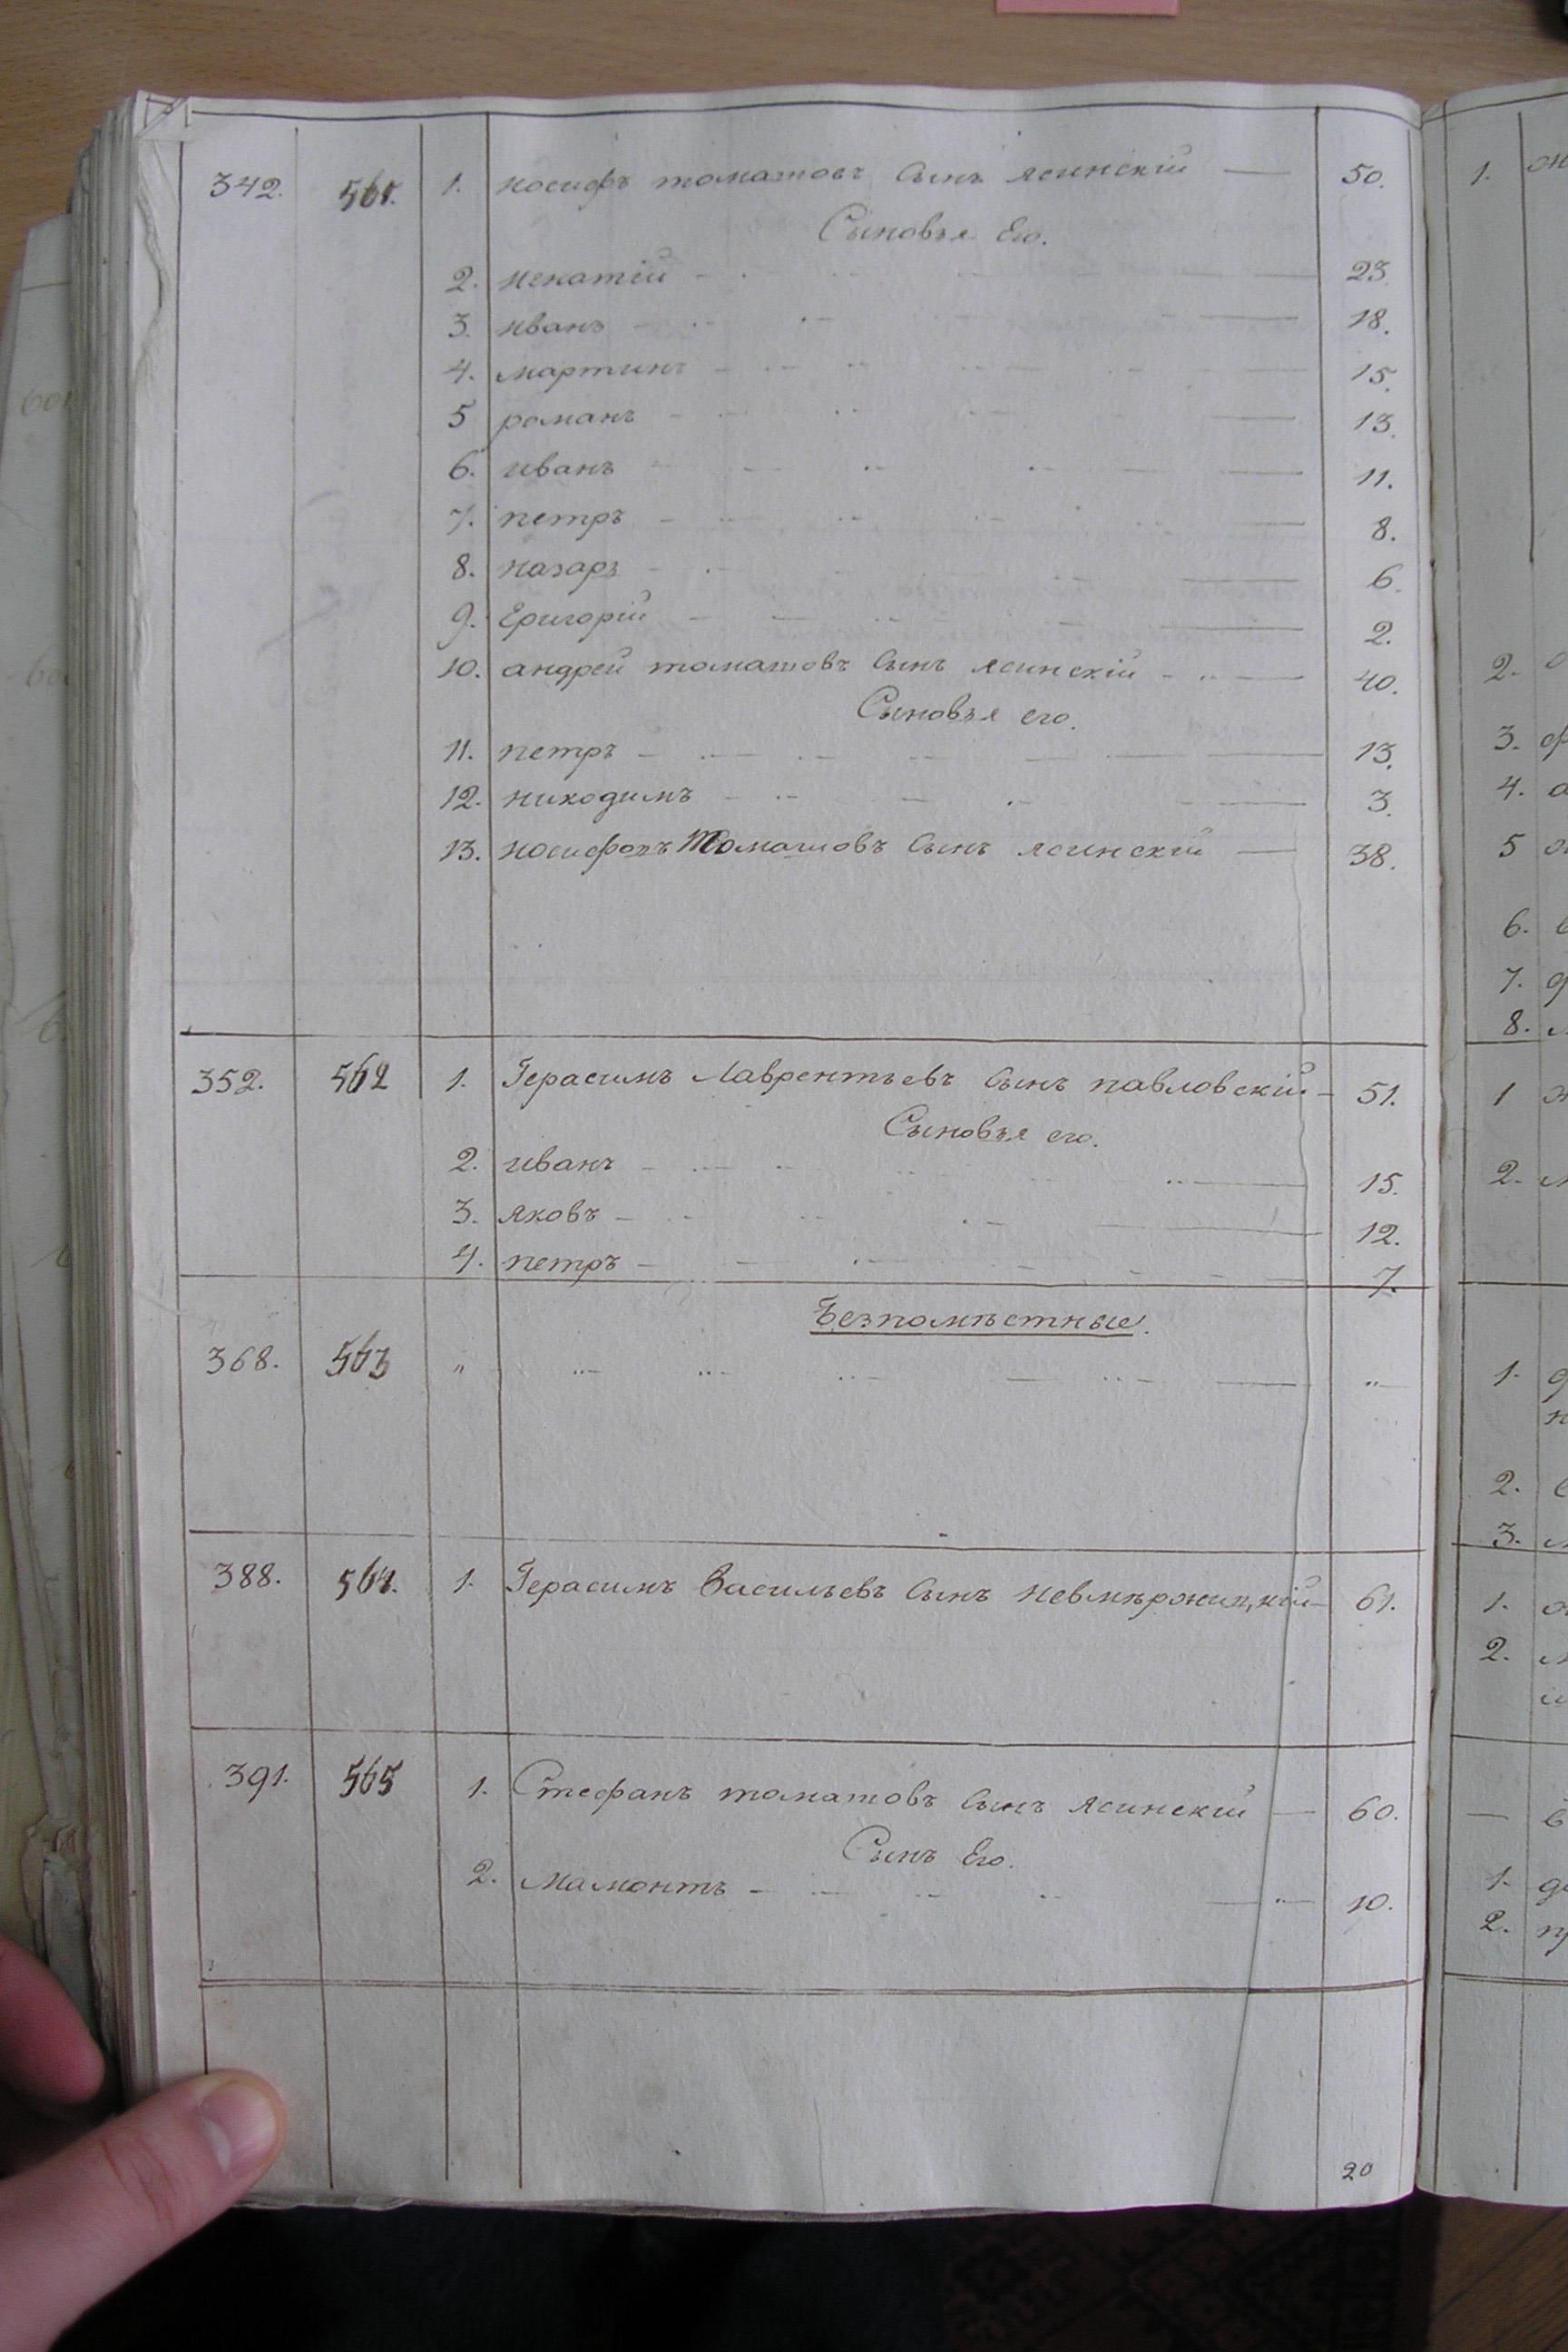 342. 561. 1. иосифъ томашовъ сынъ ясинскій — 50.
Сыновья Его.
2. игнатій 23.
3. иванъ 18.
4. мартинъ 15.
5 романъ 13.
6. иванъ 11.
7. петръ 8.
8. назаръ 6.
9. Григорій 2.
10. андрей томашовъ сынъ ясинскій 40.
Сыновья его.
11. петръ 13.
12. никодимъ 3.
13. Томашовъ сынъ ясинскій — 38.
352. 562 1. Герасимъ Лаврентьевъ сынъ павловскій 51.
Сыновья его.
2. иванъ 15.
3. яковъ 12.
4. петръ 7.
Безпоместные.
368. 563 „ „
388. 564. 1. Герасимъ Васильевъ сынъ невмержицкій 61.
391. 565 1. Стефанъ томашовъ сынъ ясинскій — 60.
Сынъ Его.
2. Мамонтъ 10.
20
1.
2.
3.
4.
5
6.
7.
8.
1
2.
1.
2.
3.
1.
2.
1.
2.